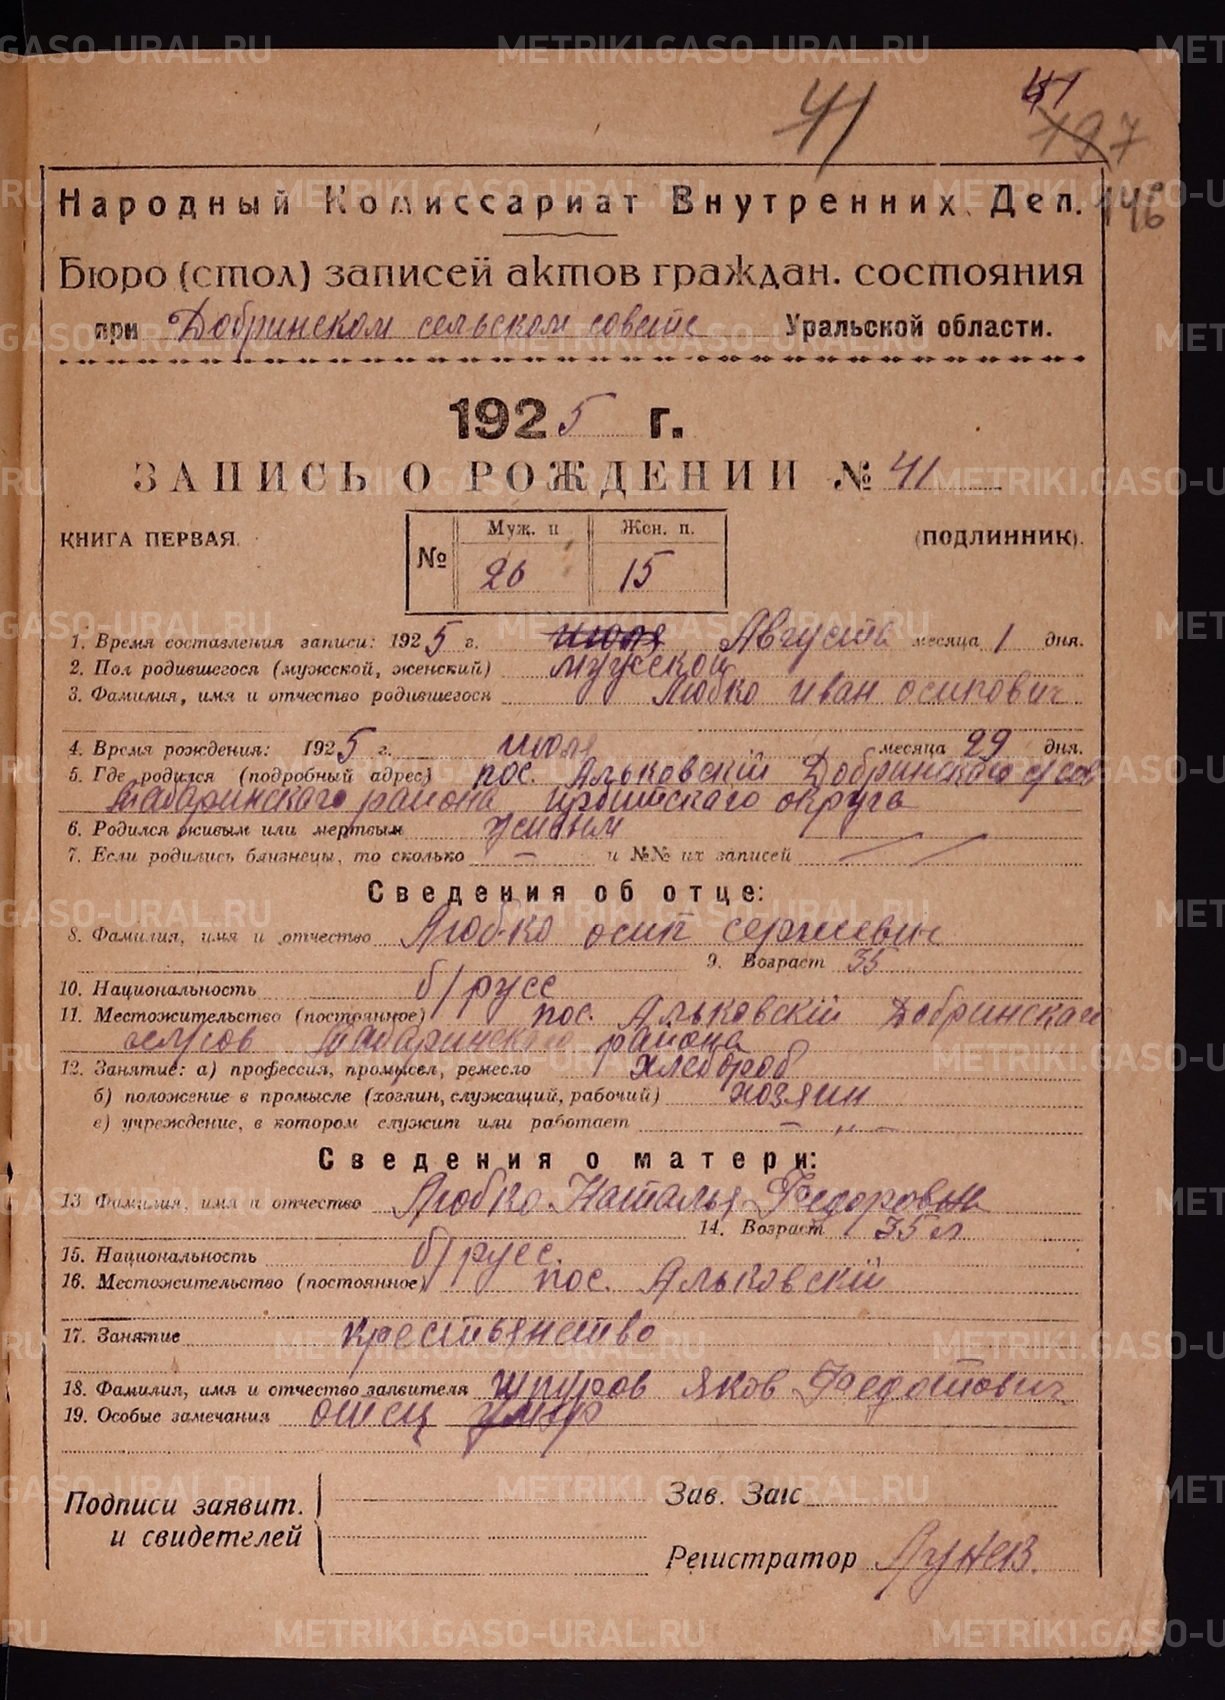 41
41
197
146
Народный Комиссариат Внутренних Дел.
Бюро (стол) записей актов граждан. состояния
при Добринском сельском совете Уральской области.
1925 г.
ЗАПИСЬ О РОЖДЕНИИ № 41
КНИГА ПЕРВАЯ. (ПОДЛИННИК).
№ Муж. п. Жен. п.
26 15
1. Время составления записи: 1925 г. июля Августа месяца 1 дня.
2. Пол родившегося (мужской, женский) мужской
3. Фамилия, имя и отчество родившегося Любко иван осипович
4. Время рождения: 1925 г. июля месяца 29 дня.
5. Где родился (подробный адрес) пос. Альковскій Добринскаго с/сов
Табаринскаго района ирбитскаго округа
6. Родился живым или мертвым живым
7. Если родились близнецы, то сколько — и №№ их записей
Сведения об отце:
8. Фамилия, имя и отчество Любко осип сергиевич
9. Возраст 35
10. Национальность б/русс
11. Местожительство (постоянное) пос. Альковскій Добринскаго
сель/сов Табаринскаго района
12. Занятие: а) профессия, промысел, ремесло хлебороб
б) положение в промысле (хозяин, служащий, рабочий) хозяин
в) учреждение, в котором служит или работает — „ —
Сведения о матери:
13 Фамилия, имя и отчество Любко Наталья Федоровна
14. Возраст 35 л
15. Национальность б/русс.
16. Местожительство (постоянное) пос. Альковскій
17. Занятие крестьянство
18. Фамилия, имя и отчество заявителя Яков Федотович
19. Особые замечания отец умер
Подписи заявит. Зав. Загс
и свидетелей
Регистратор Лунев.
METRIKI.GASO-URAL.RU